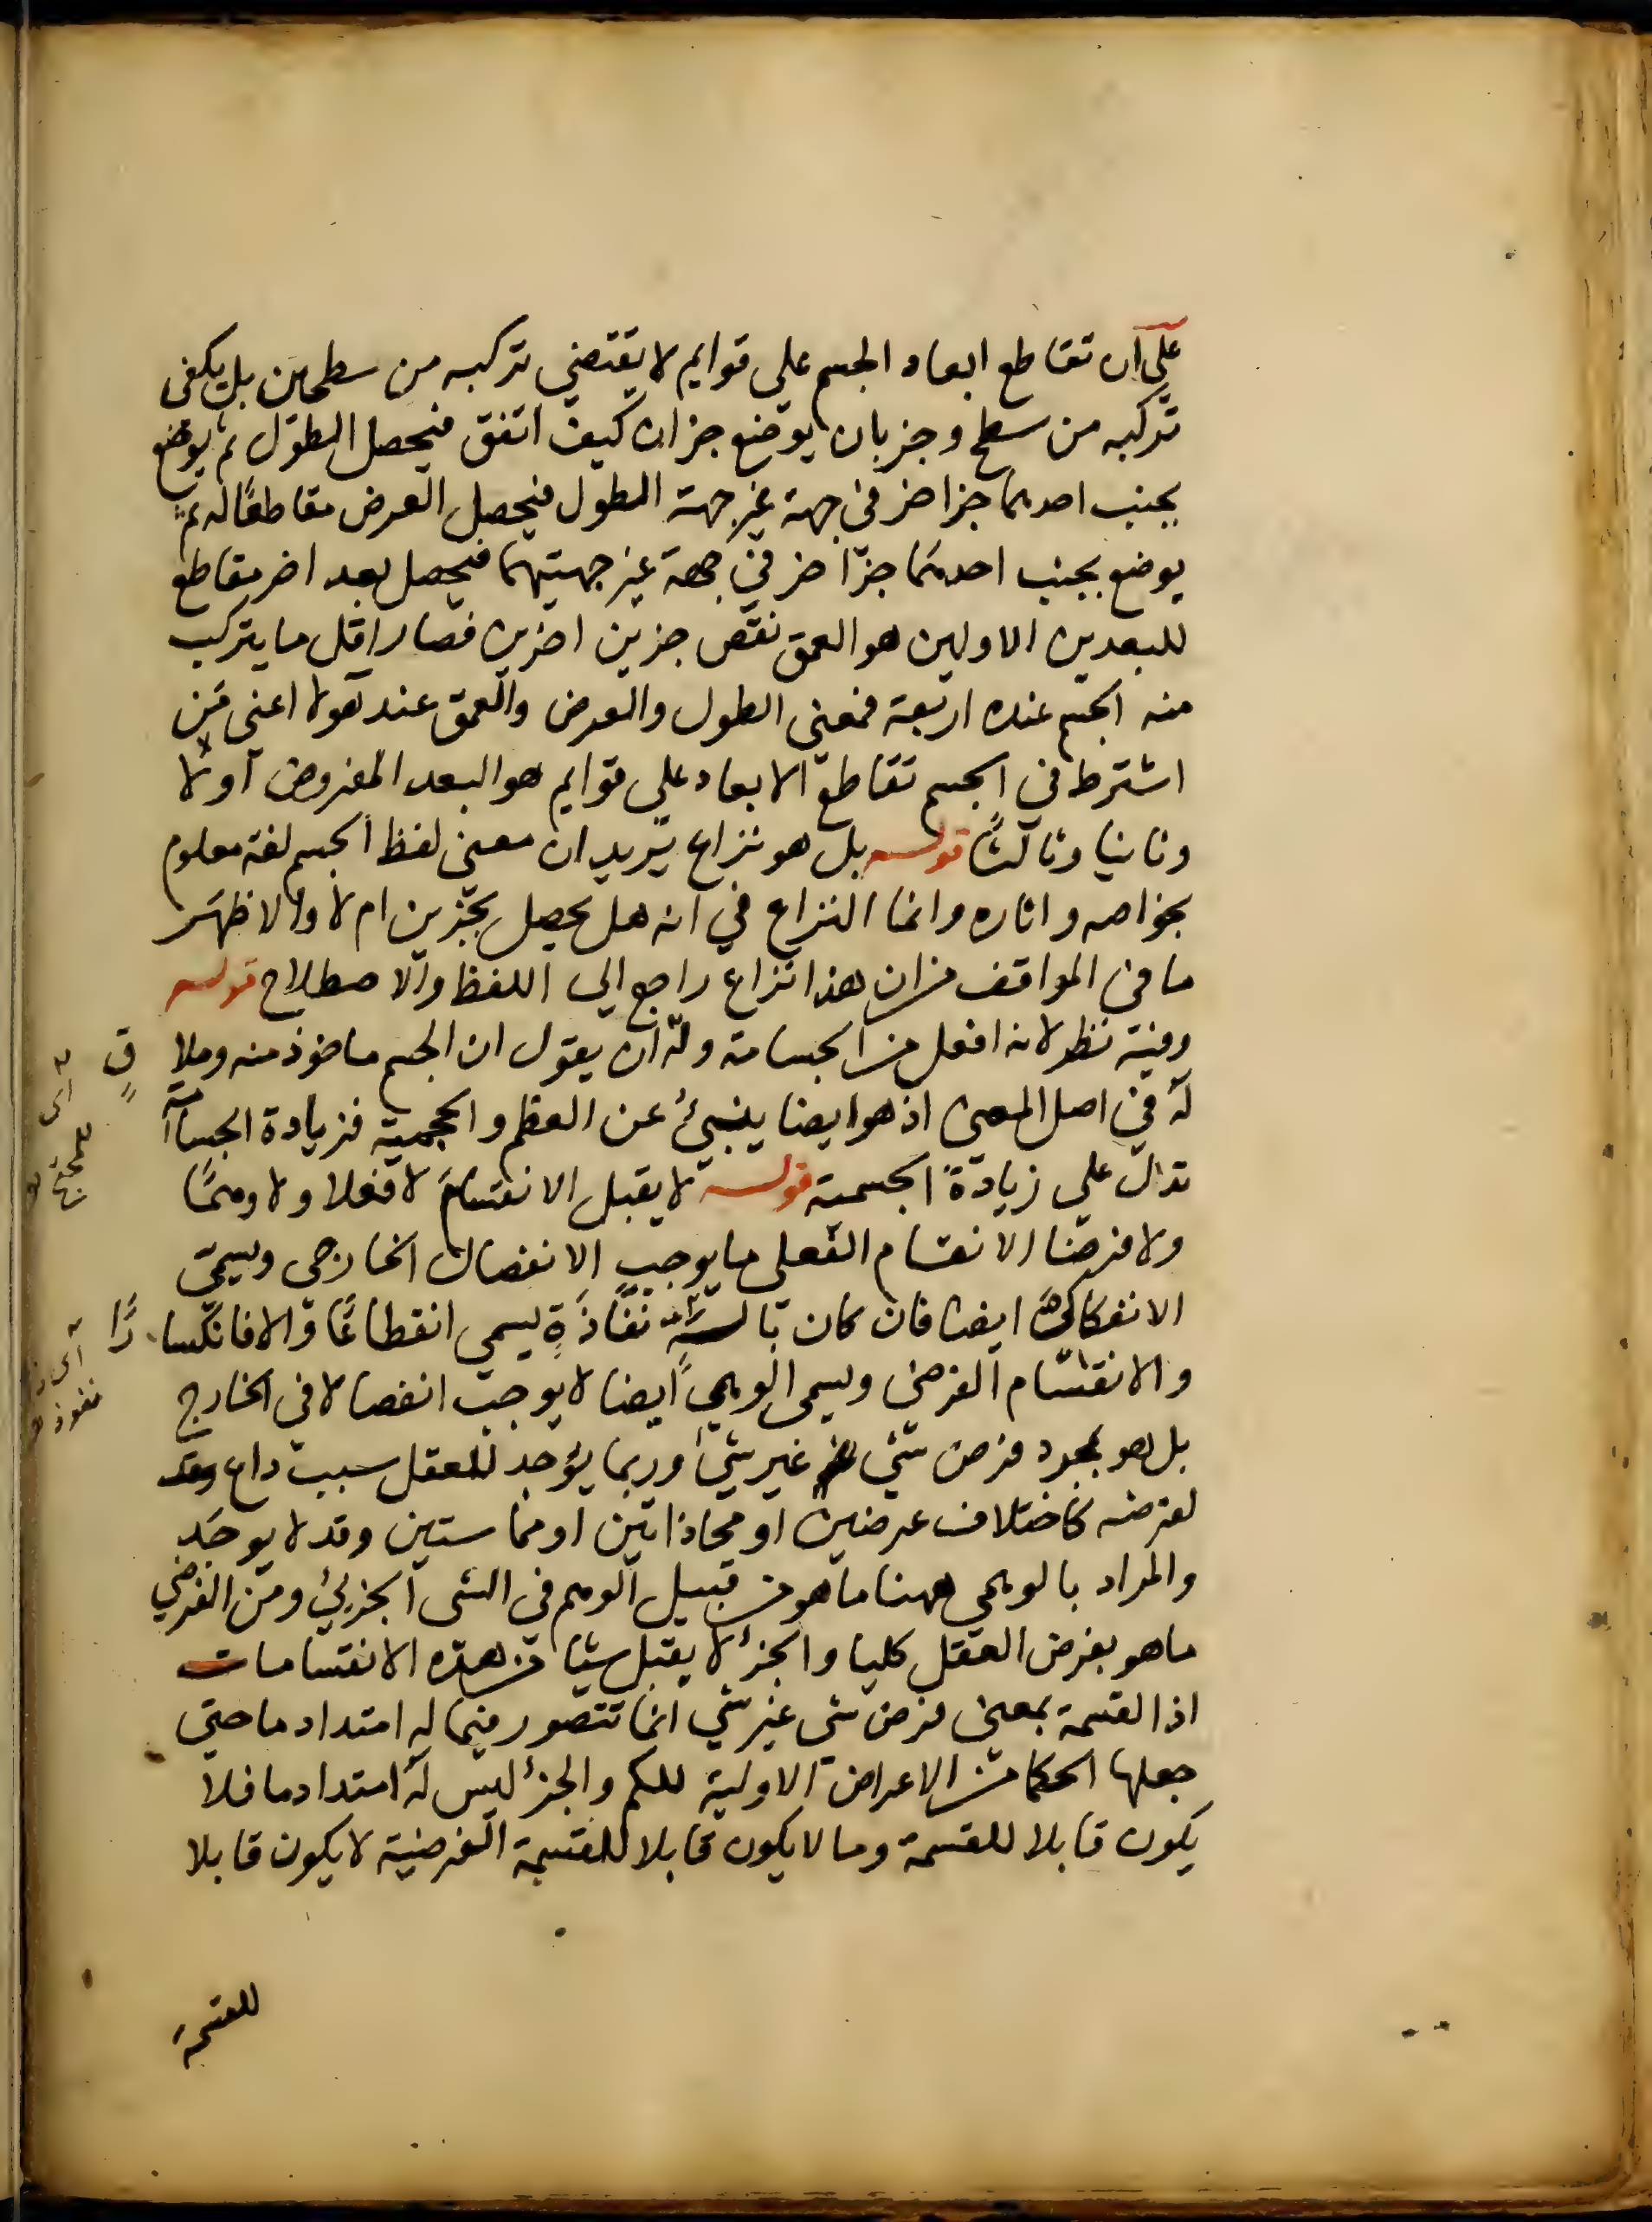 على ان تقاطع ابعاد الجسم على قوايم لا يقتضى تركبه من سطحين بل يكفى
تركبه من سطح وجز بان يوضع جزان كيف اتفق فيحصل الطول ثم يوضع
بجنب احدهما جزا خر فى جهة غير جهة الطول فيحصل العرض مقاطعًا له ثم
يوضع بجنب احدهما جزا خر في جهة غير جهتيهما فيحصل بعد اخر مقاطع
للبعدين الاولين هو العمق نقص جزين اخرين فصار اقل ما يتركب
منه الجسم عنده اربعة فمعنى الطول والعرض والعمق عند هولا اعنى من
اشترط فى الجسم تقاطع الابعاد على قوايم هو البعد المفروض اولا
وثانيا وثالثًا قوله بل هو نزاع يريد ان معنى لفظ الجسم لغة معلوم
بخواصه واثاره وانما النزاع في انه هل يحصل بجزين ام لا والاظهر
ما فى المواقف من ان هذا نزاع راجع الى اللفظ والاصطلاح قوله
وفيه نظر لانه افعل من الجسامة وله ان يقول ان الجسم ماخوذ منه وملا
ق
له في اصل المعنى اذ هو ايضا ينبئ عن العظم والحجمية فزيادة الجسامة
تدل على زيادة الجسمية قوله لا يقبل الانقسام لا فعلا ولا وهمًا
ولا فرضا الانقسام الفعلى ما يوجب الانفصال الخارجى ويسمى
الانفكاكى ايضا فان كان بآلة نفاذة يسمى انقطاعًا والا فانكسا
رًا
والانقسام الفرضى ويسمى الوهمي ايضا لا يوجب انفصالا فى الخارج
بل هو بمجرد فرض شئى غير شئ وربما يوجد للعقل سبب داع
لفرضه كاختلاف عرضين او محاذاتين او مماستين وقد لا يوجد
والمراد بالوهمى ههنا ما هو من قبيل الوهم في الشى الجزئي ومن الفرضي
ما هو بفرض العقل كليا والجزء لا يقبل شيا من هذه الانقسامات
اذ القسمة بمعنى فرض شى غير شئ انما تتصور فيما له امتداد ما حتى
جعلها الحكما من الاعراض الاولية للكم والجزء ليس له امتداد ما فلا
يكون قابلا للقسمة وما لا يكون قابلا للقسمة الفرضية لا يكون قابلا
للقسمة